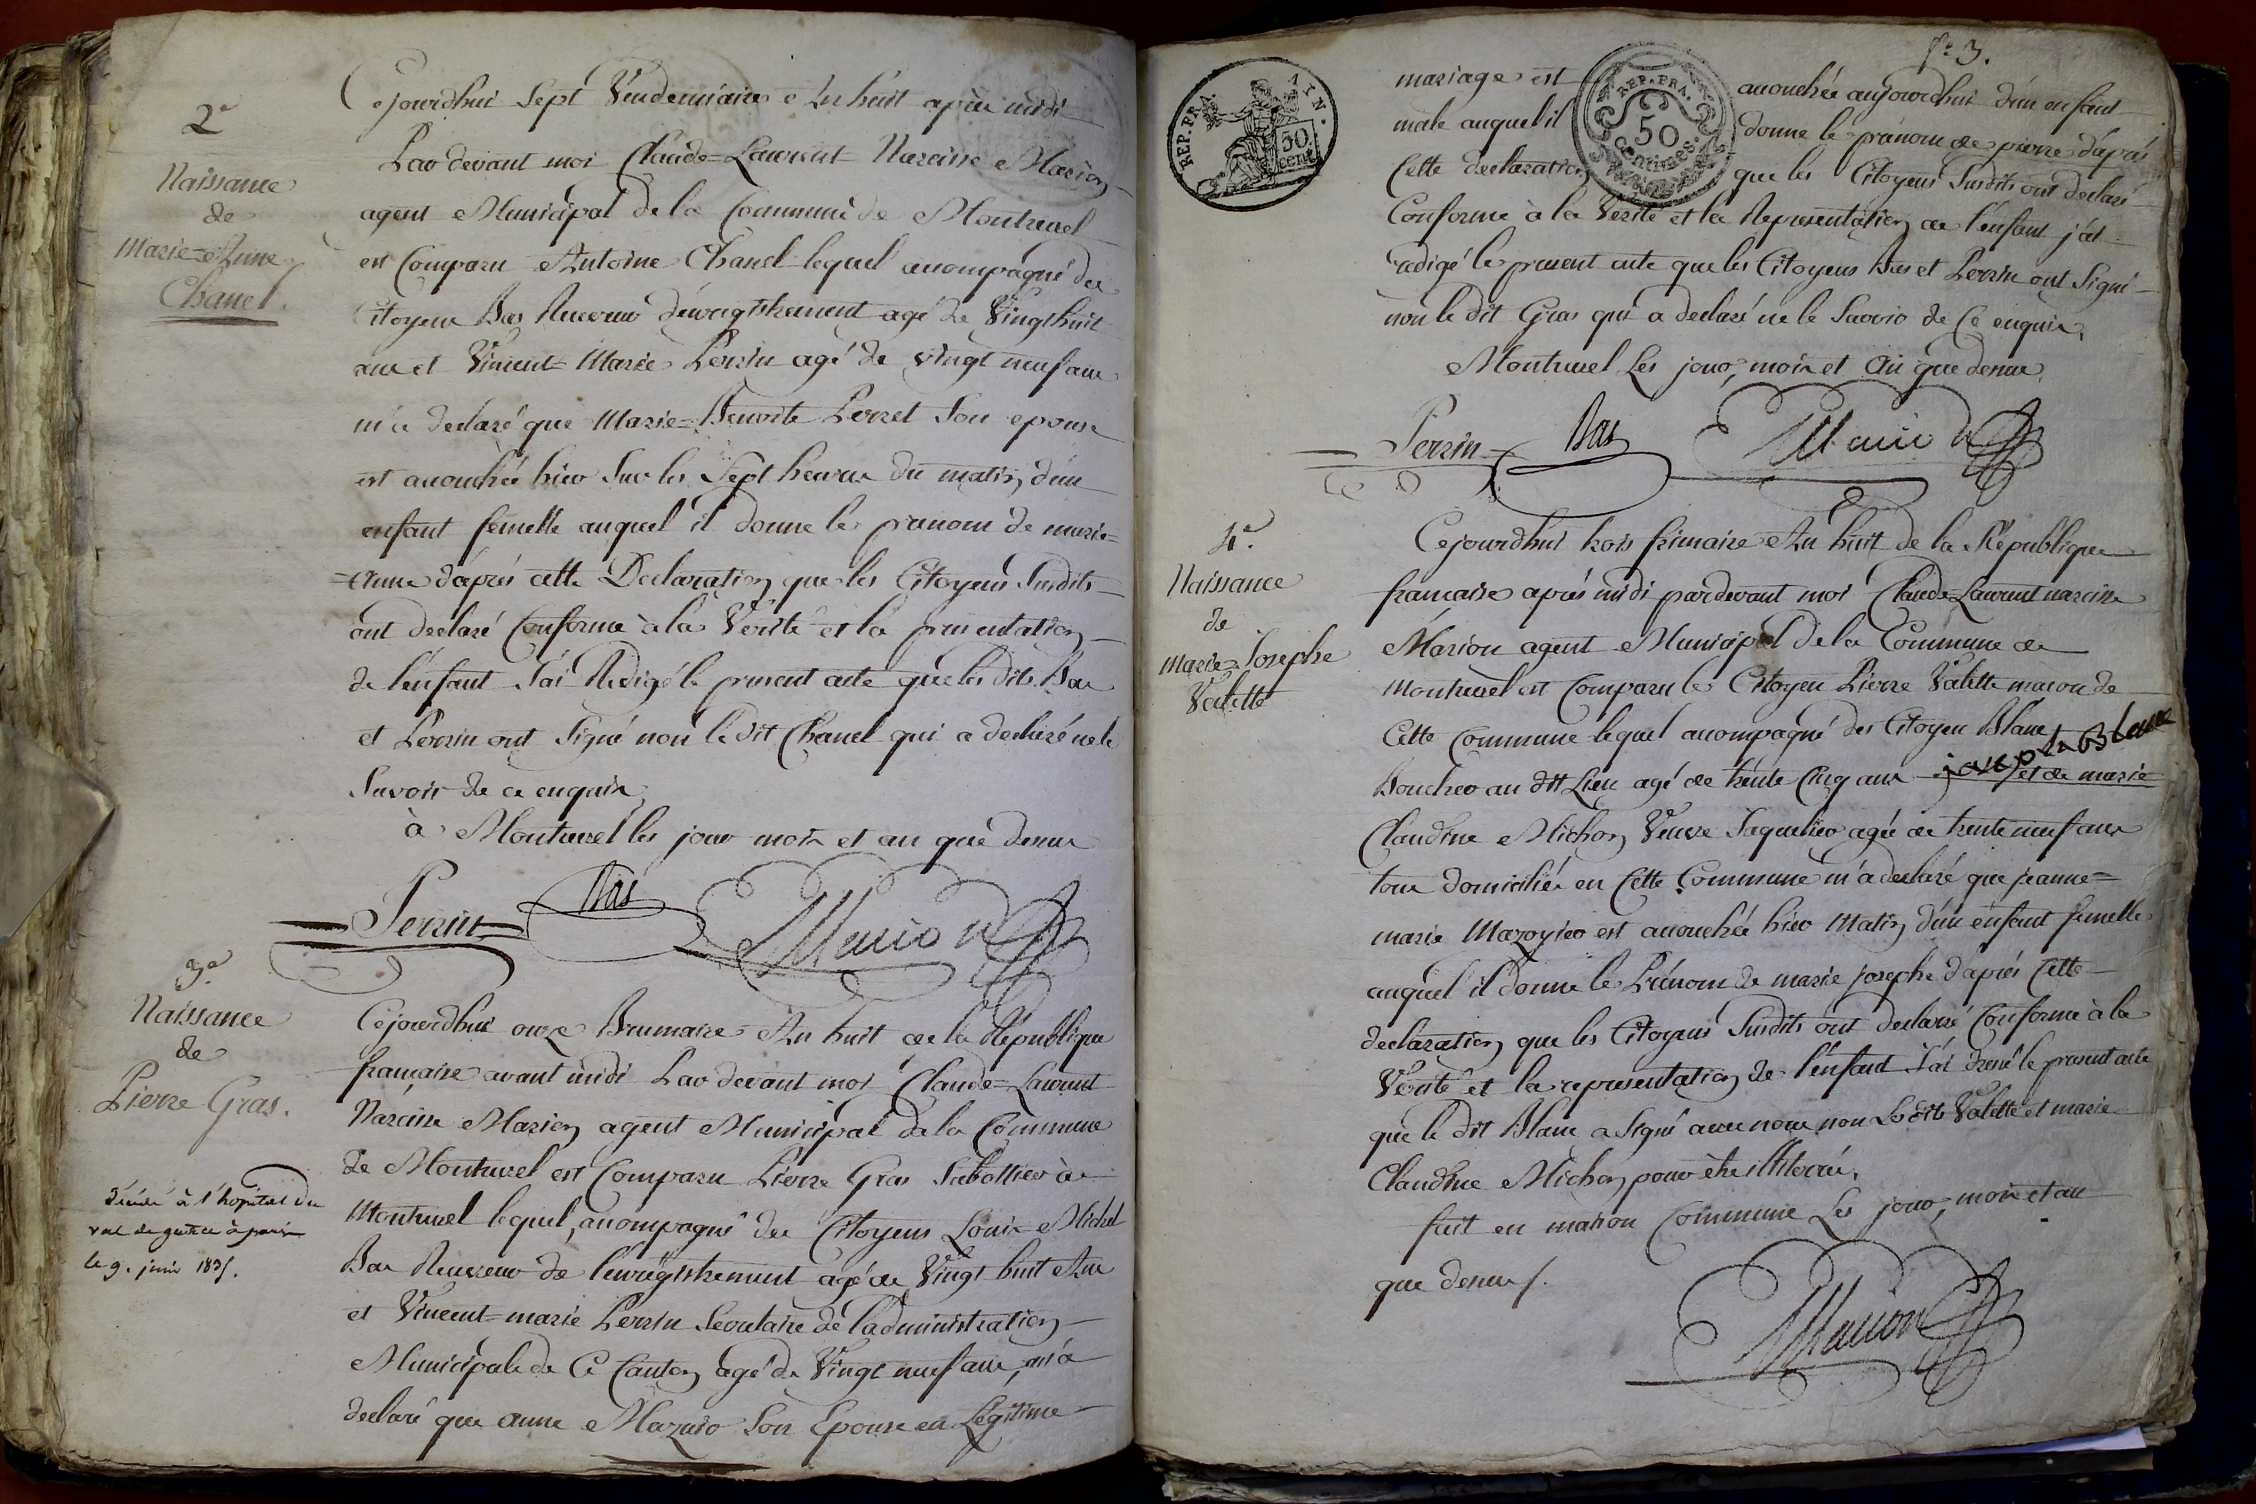 2e
Naissance
de
Marie=Anne
Chanel.
Cejourdhui Sept Vendemiaire An huit après midi
Par devant moi Claude=Laurent=Narcisse Marion
agent Municipal de la Commune de Montluel
est Comparu Antoine Chanel lequel accompagné des
Citoyens Bas Receveur d'enregistrement agé de Vingt huit
ans et Vincent=Marie Perrin agé de vingt neuf ans
m'a declaré que Marie=Benoite Perret Son epouse
est accouchée hier Sur les Sept heures du matin d'un
enfant femelle auquel il donne le prenom de marie=
=Anne d'après cette Declaration que les Citoyens Susdits
ont declaré Conforme à la Verité et la presentation
de l'enfant J'ai Redigé le present acte que les dits Bas
et Perrin ont Signé non le dit Chanel qui a declaré ne le
Savoir de ce enquis
à Montluel les jour mois et an que dessus
Perrin Bas Marion
3e
Naissance
de
Pierre Gras.
décédé à l'hopital du
val de grace à paris
le 9. juin 1835.
Cejourdhui onze Brumaire An huit de la République
française avant midi Par devant moi Claude=Laurent
Narcisse Marion agent Municipal de la Commune
de Montluel est Comparu Pierre Gras Sabottier de
Montluel lequel, accompagné des Citoyens Louis Michel
Bas Receveur de l'enregistrement agé de Vingt huit Ans
et Vincent=marie Perrin Secretaire de l'administration
Municipale de Ce Canton agé de Vingt neuf ans, m'a
declaré que anne Mazuir Son Epouse en Légitime
fo. 3.
REP. FRA. AYN. 50 cent.
REP. FRA. 50 centimes
mariage est accouchée aujourdhui d'un enfant
male auquel il donne le prenom de pierre d'après
Cette declaration que les Citoyens Susdits ont declaré
Conforme à la Verité et la Representation de l'enfant j'ai
redigé le present acte que les Citoyens Bas et Perrin ont Signé
non le dit Gras qui a declaré ne le Savoir de Ce enquis,
Montluel Les jour, mois et an que dessus
Perrin Bas Marion
4e.
Naissance
de
marie=Josephe
Valette
Cejourdhui trois frimaire An huit de la République
française après midi pardevant moi Claude=Laurent narcisse
Marion agent Municipal de la Commune de
Montluel est Comparu le Citoyen Pierre Valette macon de
Cette Commune lequel accompagné des Citoyen Blanc
Boucher au dit Lieu agé de trente Cinq ans joseph Blanc et de marie
Claudine Michon Veuve Jaquelier agée de trente neuf ans
tous domiciliés en Cette Commune m'a declaré que jeanne=
marie Mazoyier est accouchée hier Matin d'un enfant femelle
auquel il donne le Prénom de marie josephe d'après Cette
declaration que les Citoyens Susdits ont declaré Conforme à la
Verité et la representation de l'enfant J'ai dressé le present acte
que le dit Blanc a Signé avec nous non Lesdits Valette et marie
Claudine Michon pour être illiterés.
fait en maison Commune Les jour, mois et an
que dessus/.
Marion